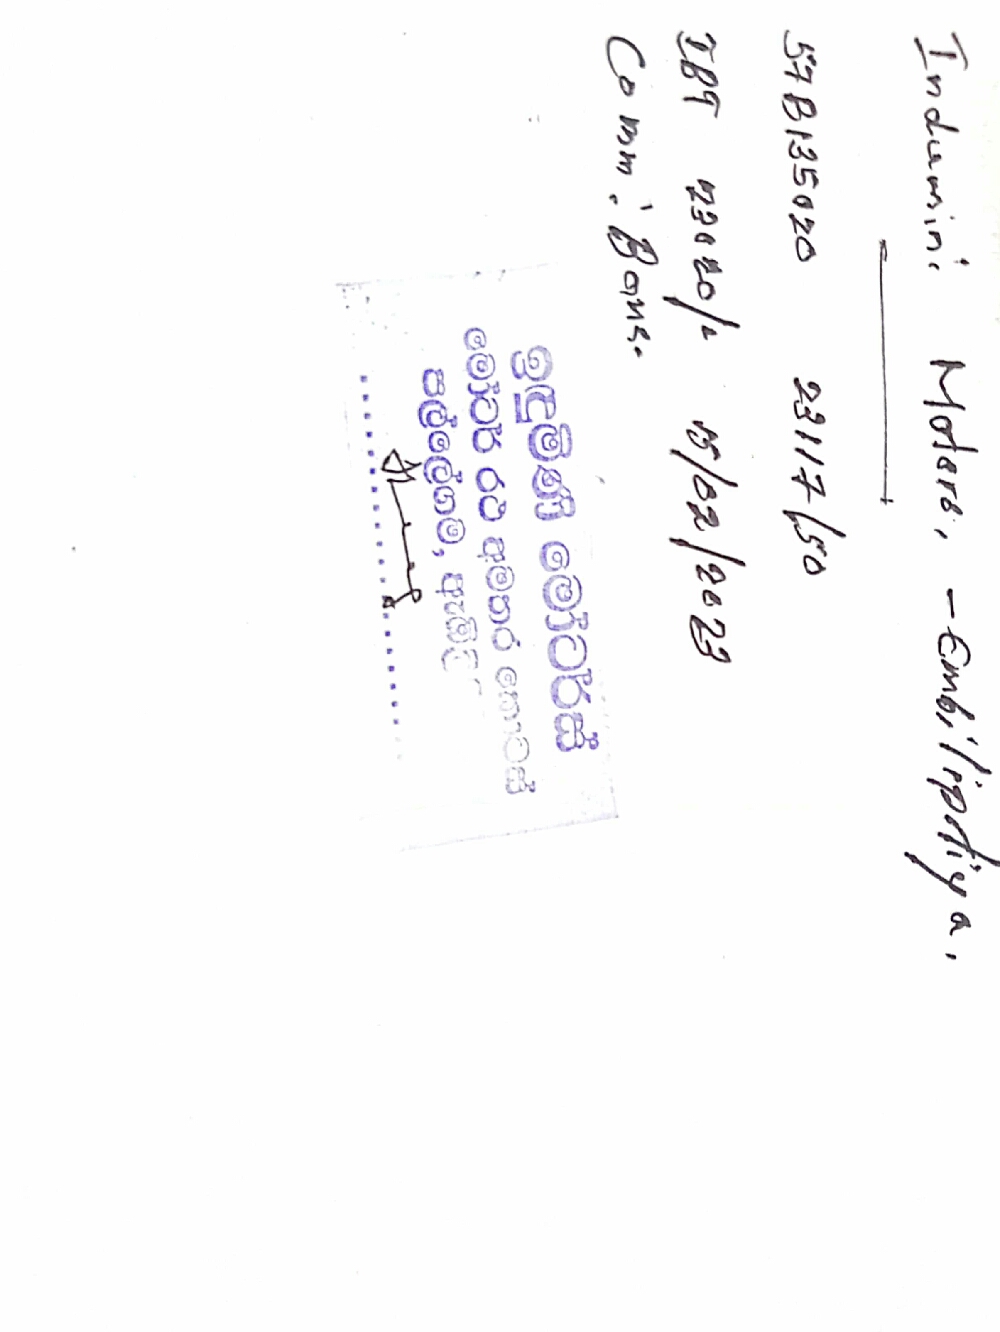 Indumini Motors, - Embilipitiya.
57B135020 23117/50
IBT 23020/- 15/02/2023
Comm: Bank.
ඉඳුමිණි මෝටර්ස්
මෝටර් රථ අමතර කොටස්
පල්ලේගම, ඇඹිලි